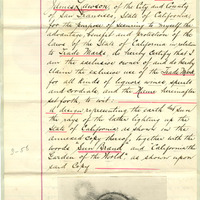 James Dawson, of the City and County
of San Francisco, State of California,
For the purpose of securing to myself the
advantage, benefit and protection of the
laws of the State of California in relation
to Trade Marks, do hereby certify that I
am the exclusive owner of, and do hereby
claim the exclusive use of the Trade Mark
for all kinds of liquors wines spirits
and cordials and the Name hereinafter
set forth, to wit:
A design representing the earth and Sun
the rays of the latter lighting up the
State of California as shown in the
annexed Copy thereof, together with the
words Sun Brand and "California the
Garden of the World", as shown upon
said Copy